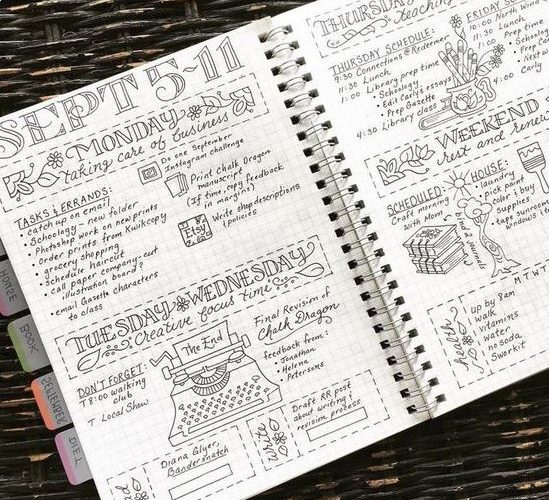 SEPT 5-11
MONDAY
taking care of business
TASKS & ERRANDS:
• catch up on email
• Schoology - new folder
• Photoshop work on new prints
• Order prints from Kwikcopy
• grocery shopping
• Schedule haircut
• Call paper company: cut
illustration board?
• email Gazette characters
to class
Do one September
Instagram challenge
Print Chalk Dragon
manuscript
(If time, copy feedback
in margins)
Etsy
Write shop descriptions
& policies
TUESDAY WEDNESDAY
Creative focus time
DON'T FORGET:
T 8:00 walking
club
T Local Show
The End
Final Revision of
Chalk Dragon
feedback from:
• Jonathan
• Helena
• Petersons
Diana Glyer,
Bandersnatch
write
Draft RR post
about writing &
revision process
THURSDAY
teaching
THURSDAY SCHEDULE:
9:30 Connections @ Redeemer
11:30 Lunch
1:00 Library prep time
• Schoology
• Edit Carly's essay
• Prep Gazette
4:30 Library class
FRIDAY
10:00 North Wind
11:30 Lunch
1:00 Prep time
• Schoology
• Prep
• Next
4:00 Carly
WEEKEND
rest and renew
SCHEDULED:
Craft morning
with Mom
bind journals
HOUSE:
• laundry
• pick paint
color & buy
supplies
• tape sunroom
windows
M T W T
health
up by 8am
walk
vitamins
water
no soda
Sworkit
HOUSE
BOOK
SEPTEMBER
DIET